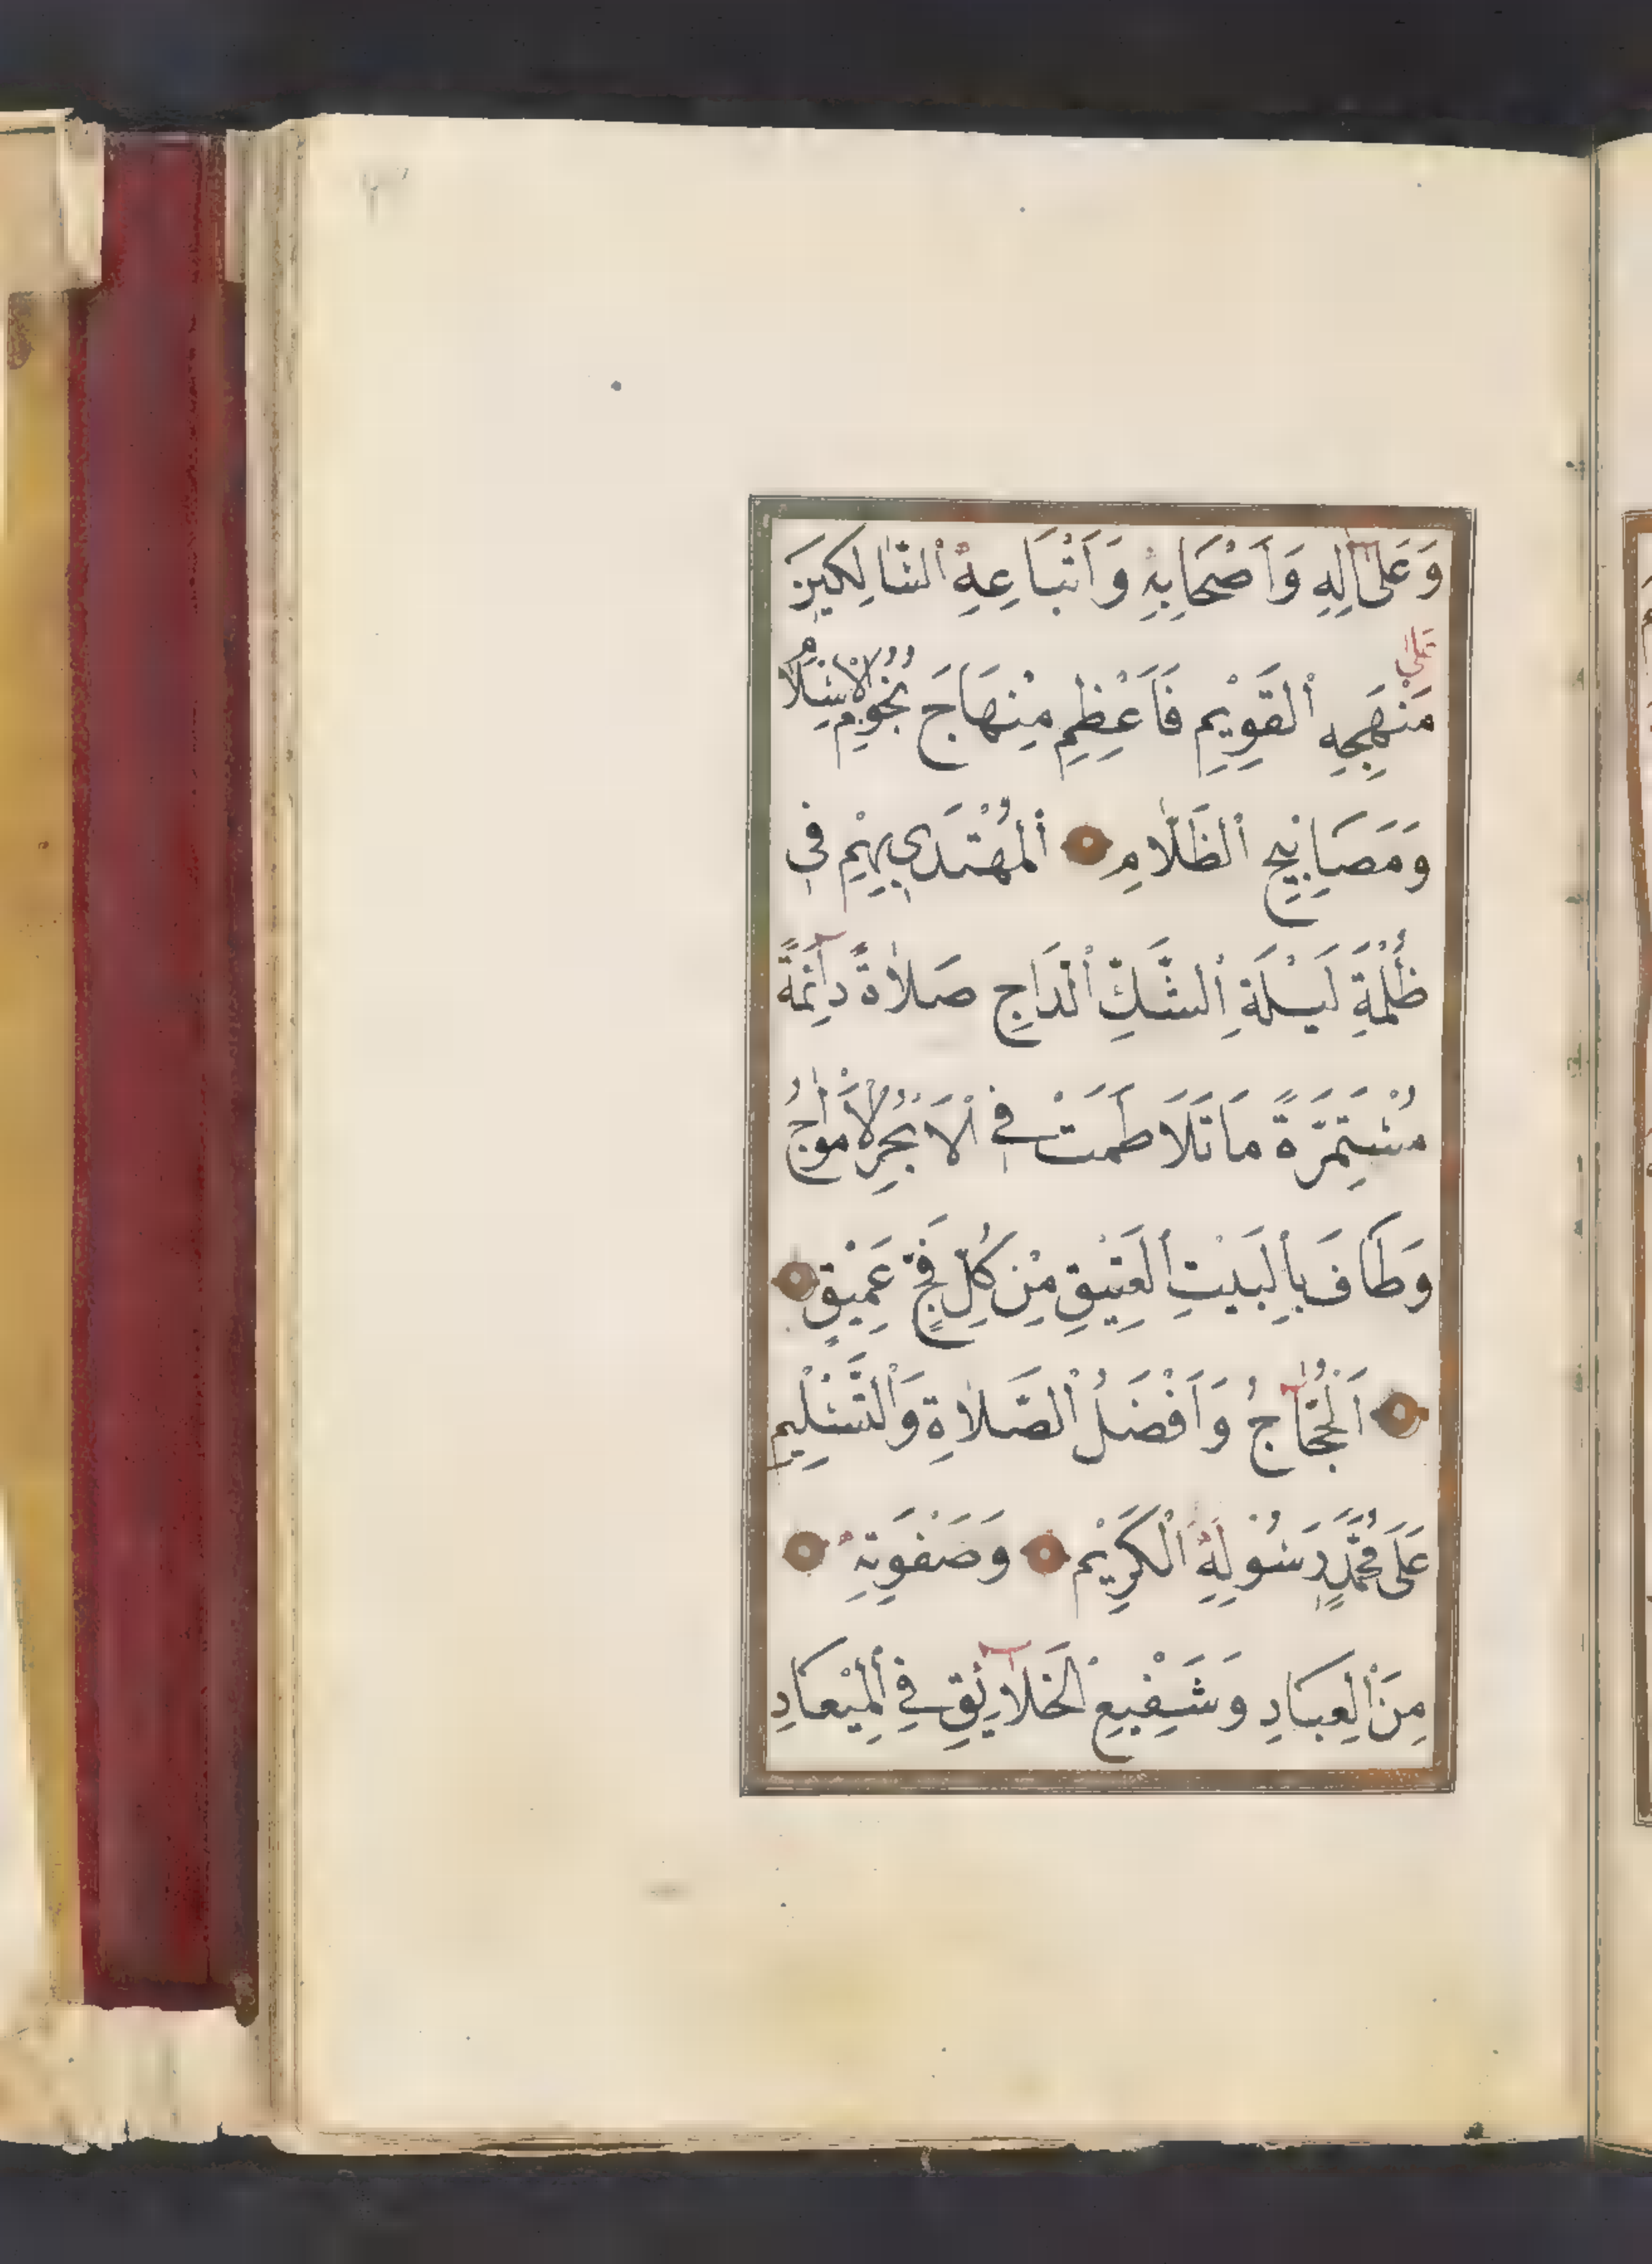 وَعَلَىٰ آلِهِ وَاَصْحَابِهِ وَاَتْبَاعِهِ السَّالِكِينَ
عَلَى
مَنْهَجِهِ الْقَوِيْمِ فَاَعْظِمِ مِنْهَاجَ نُجُومِ الْاِسْلَامِ
وَمَصَابِيحِ الظَّلَامِ اَلْمُهْتَدٰى بِهِمْ فِى
ظُلْمَةِ لَيْلَةِ الشَّكِّ الدَّاجِ صَلَاةً دَآئِمَةً
مُسْتَمِرَّةً مَا تَلَاطَمَتْ فِى الْاَبْحُرِ الْاَمْوَاجُ
وَطَافَ بِالْبَيْتِ الْعَتِيْقِ مِنْ كُلِّ فَجٍّ عَمِيْقٍ
اَلْحُجَّاجُ وَاَفْضَلُ الصَّلَاةِ وَالتَّسْلِيمِ
عَلَى مُحَمَّدٍ رَسُوْلِهِ الْكَرِيْمِ وَصَفْوَتِهِ
مِنَ الْعِبَادِ وَشَفِيْعِ الْخَلَآئِقِ فِى الْمِيْعَادِ